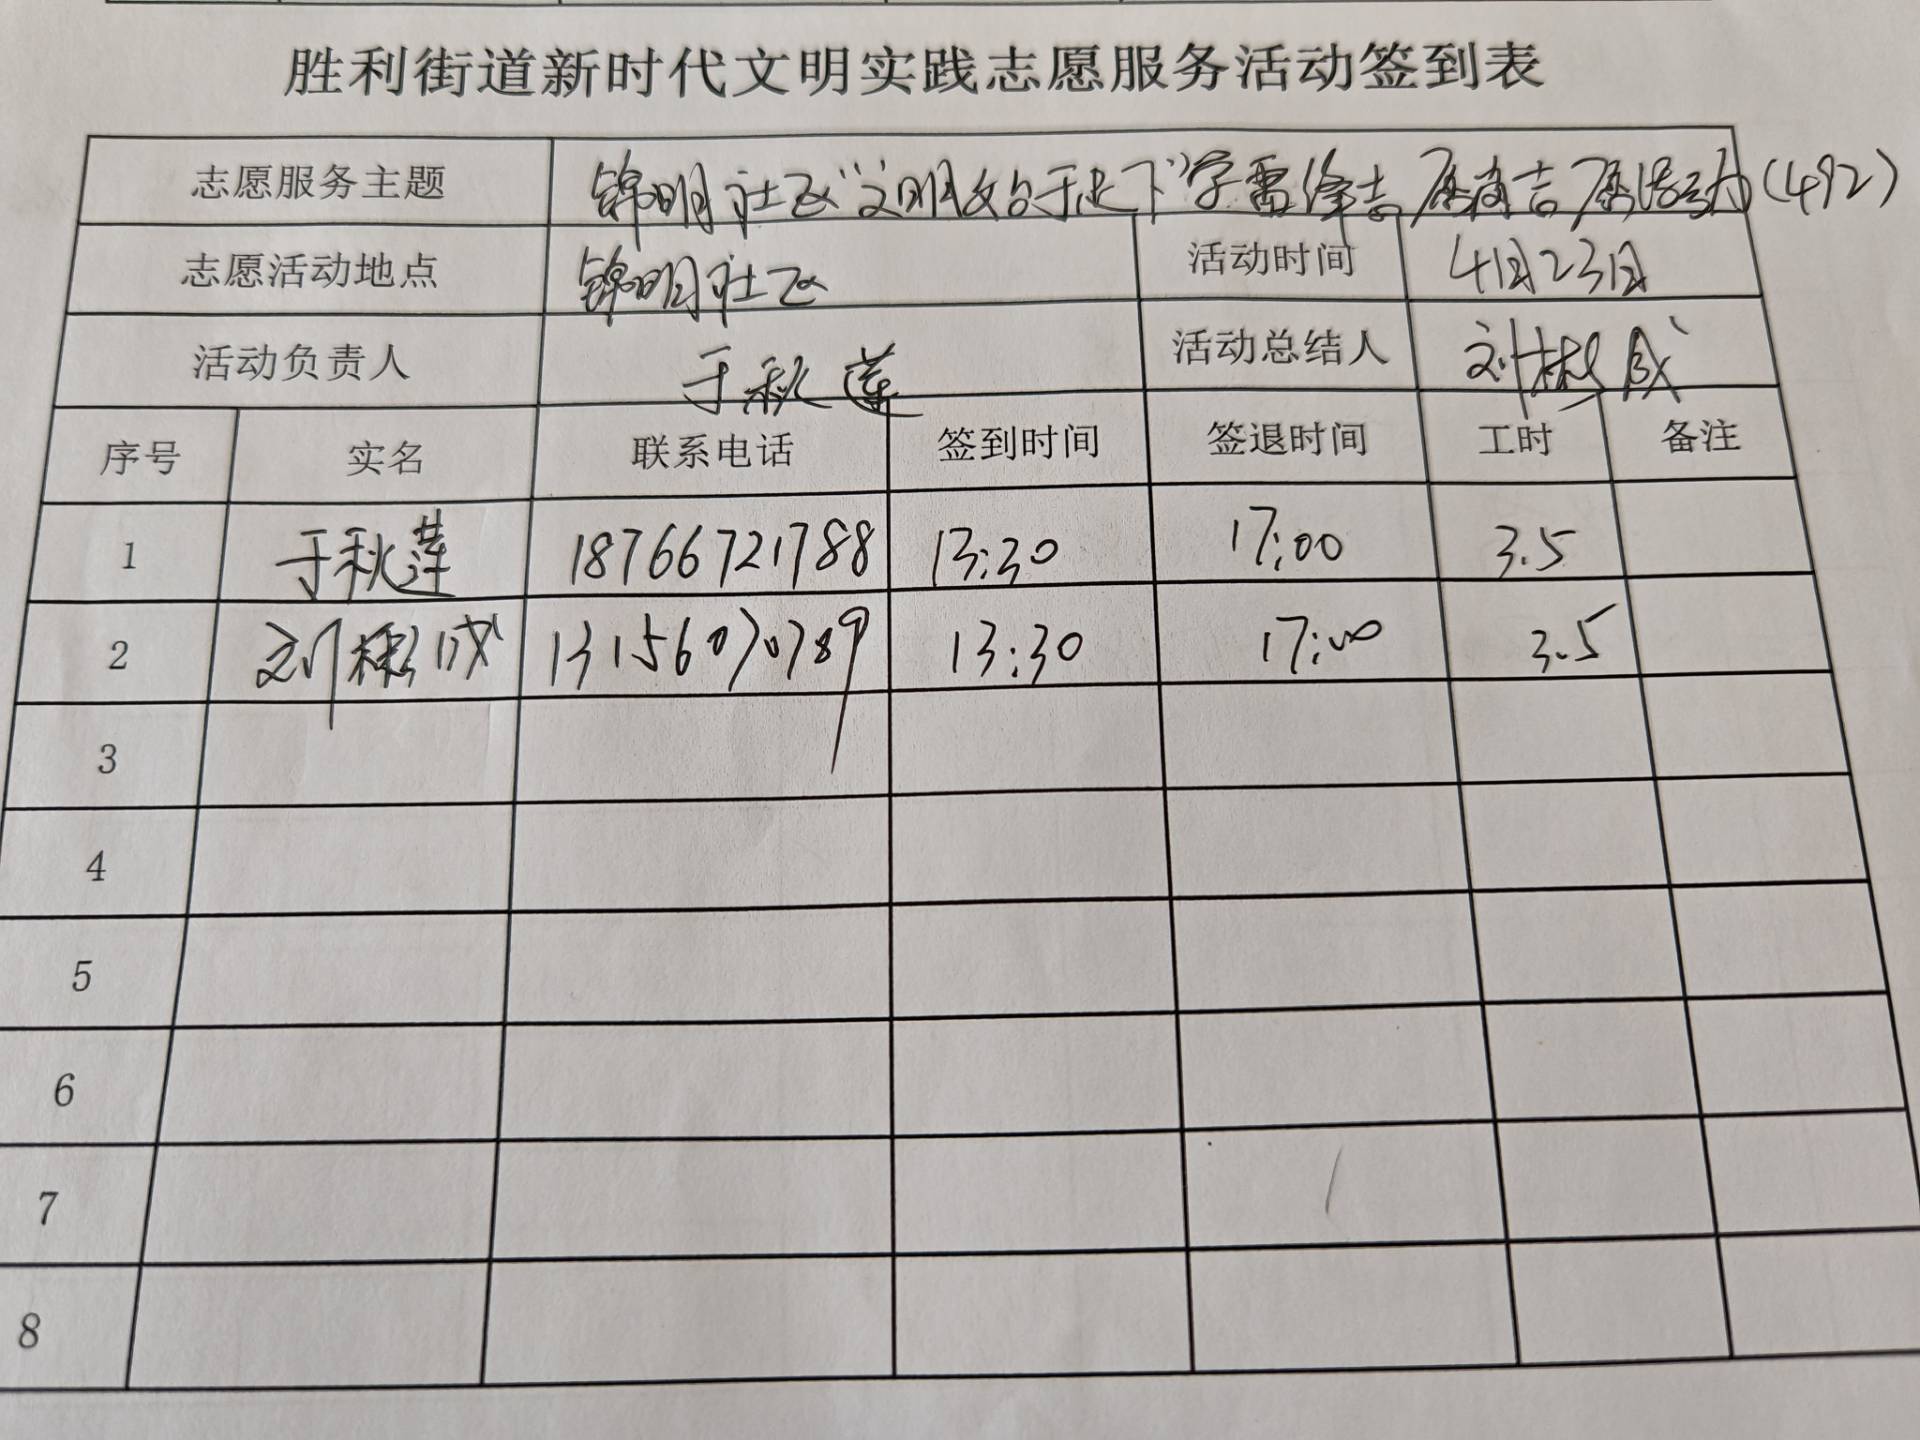 胜利街道新时代文明实践志愿服务活动签到表
志愿服务主题 锦明社区“文明始于足下”学雷锋志愿 活动(492)
志愿活动地点 锦明社区 活动时间 4月23日
活动负责人 于秋莲 活动总结人 刘 成
序号 实名 联系电话 签到时间 签退时间 工时 备注
1 于秋莲 18766721788 13:30 17:00 3.5
2 刘 成 13156070789 13:30 17:00 3.5
3
4
5
6
7
8